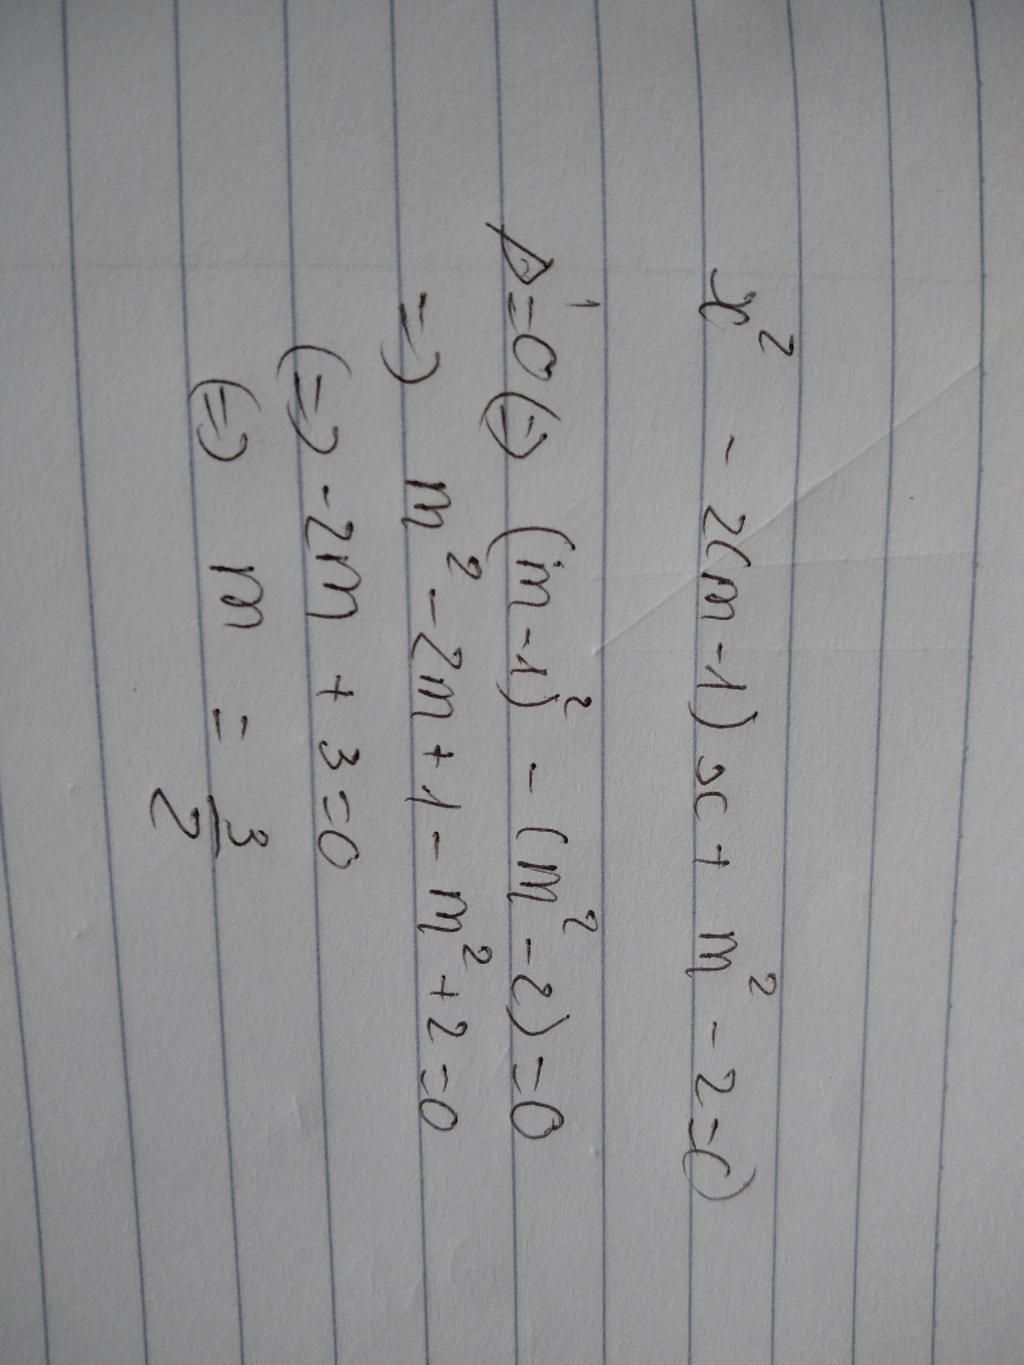 x² - 2(m-1)x + m² - 2 = 0
Δ' = 0 (=) (m-1)² - (m² - 2) = 0
=) m² - 2m + 1 - m² + 2 = 0
(=) -2m + 3 = 0
(=) m = 3/2